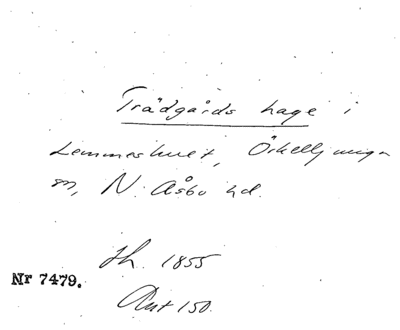 Trädgårds hage i
Lemmeshult, Örkelljunga
sn, N. Åsbo hd.
Th. 1855
Nr 7479.
Ant 150.